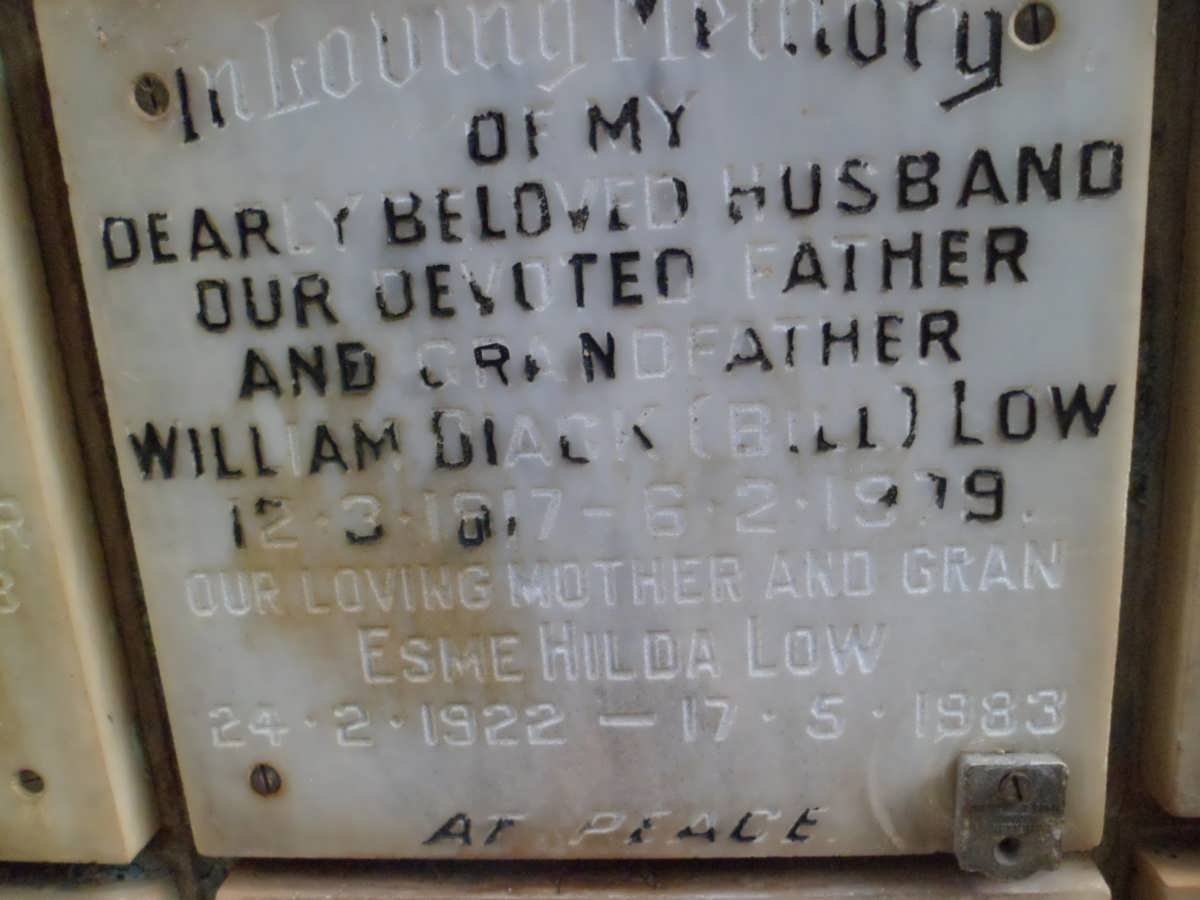 In Loving Memory
OF MY
DEARLY BELOVED HUSBAND
OUR DEVOTED FATHER
AND GRANDFATHER
WILLIAM DIACK (BILL) LOW
12·3·1917-6·2·1979.
OUR LOVING MOTHER AND GRAN
ESME HILDA LOW
24·2·1922 — 17·5·1983
AT PEACE.